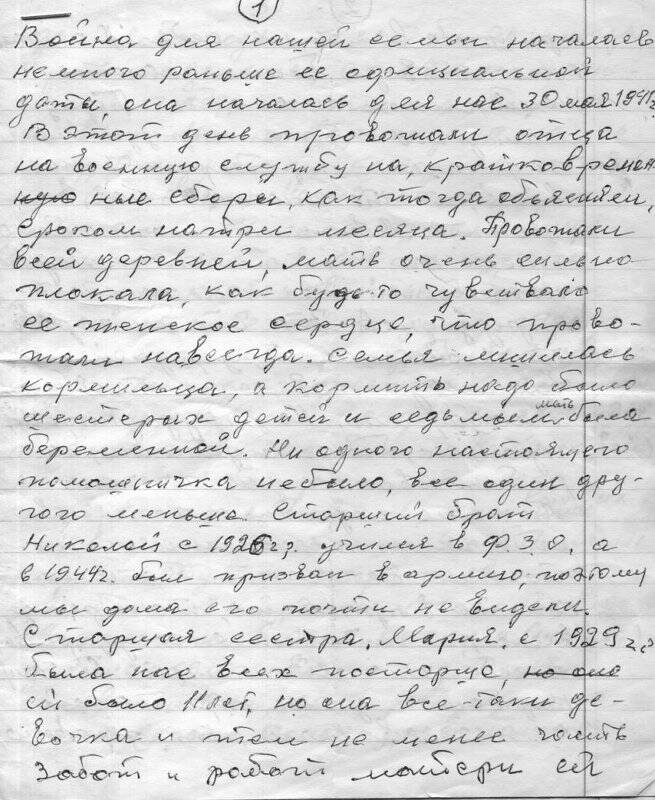 1
Война для нашей семьи началась
немного раньше ее официальной
даты, она началась для нас 30 мая 1941г.
В этот день провожали отца
на военную службу на, кратковремен
ную ные сборы, как тогда объясняли,
сроком на три месяца. Провожали
всей деревней, мать очень сильно
плакала, как будь-то чувствовало
ее женское сердце, что прово-
жали навсегда. Семья лишилась
кормильца, а кормить надо было
шестерых детей и седьмым мать была
беременной. Ни одного настоящего
помошничка небыло, все один дру-
гого меньше. Старший брат
Николай с 1926г.р. учился в Ф.З.О, а
в 1944г. был призван в армию, поэтому
мы дома его почти не видели.
Старшая сестра, Мария, с 1929 г.р
была нас всех постарше, но она
ей было 11 лет, но она все-таки де-
вочка и тем не менее часть
забот и работ матери ей